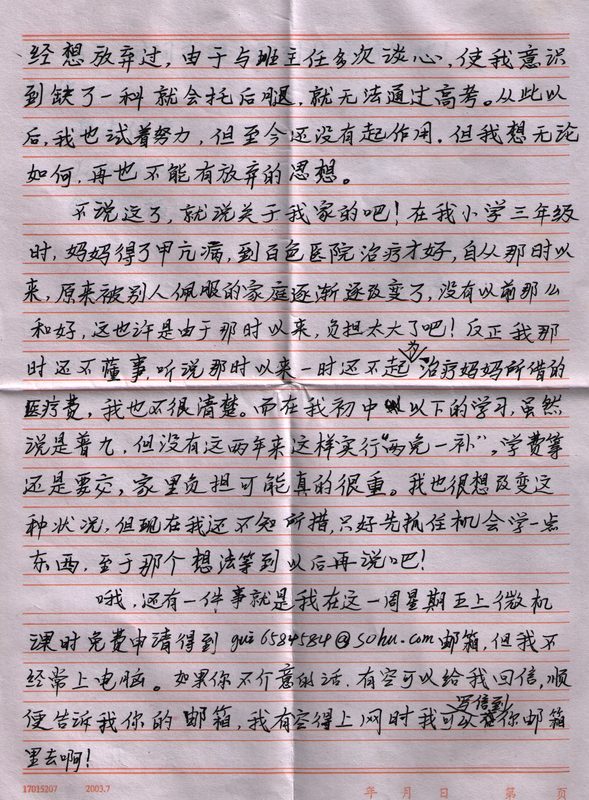 经想放弃过，由于与班主任多次谈心，使我意识
到缺了一科就会托后腿，就无法通过高考。从此以
后，我也试着努力，但至今还没有起作用。但我想无论
如何，再也不能有放弃的思想。
不说这了，就说关于我家的吧！在我小学三年级
时，妈妈得了甲亢病，到百色医院治疗才好，自从那时以
来，原来被别人佩服的家庭逐渐逐改变了，没有以前那么
和好，这也许是由于那时以来，负担太大了吧！反正我那
时还不懂事，听说那时以来一时还不起为治疗妈妈所借的
医疗费，我也不很清楚。而在我初中以下的学习，虽然
说是普九，但没有这两年来这样实行“两免一补”，学费等
还是要交，家里负担可能真的很重。我也很想改变这
种状况，但现在我还不知所措，只好先抓住机会学一点
东西，至于那个想法等到以后再说吧！
哦，还有一件事就是我在这一周星期五上微机
课时免费申请得到 gui6584584@sohu.com 邮箱，但我不
经常上电脑。如果你不介意的话，有空可以给我回信，顺
便告诉我你的邮箱，我有空得上网时我可以写信到你邮箱
里去啊！
17015207 2003.7 年 月 日 第 页